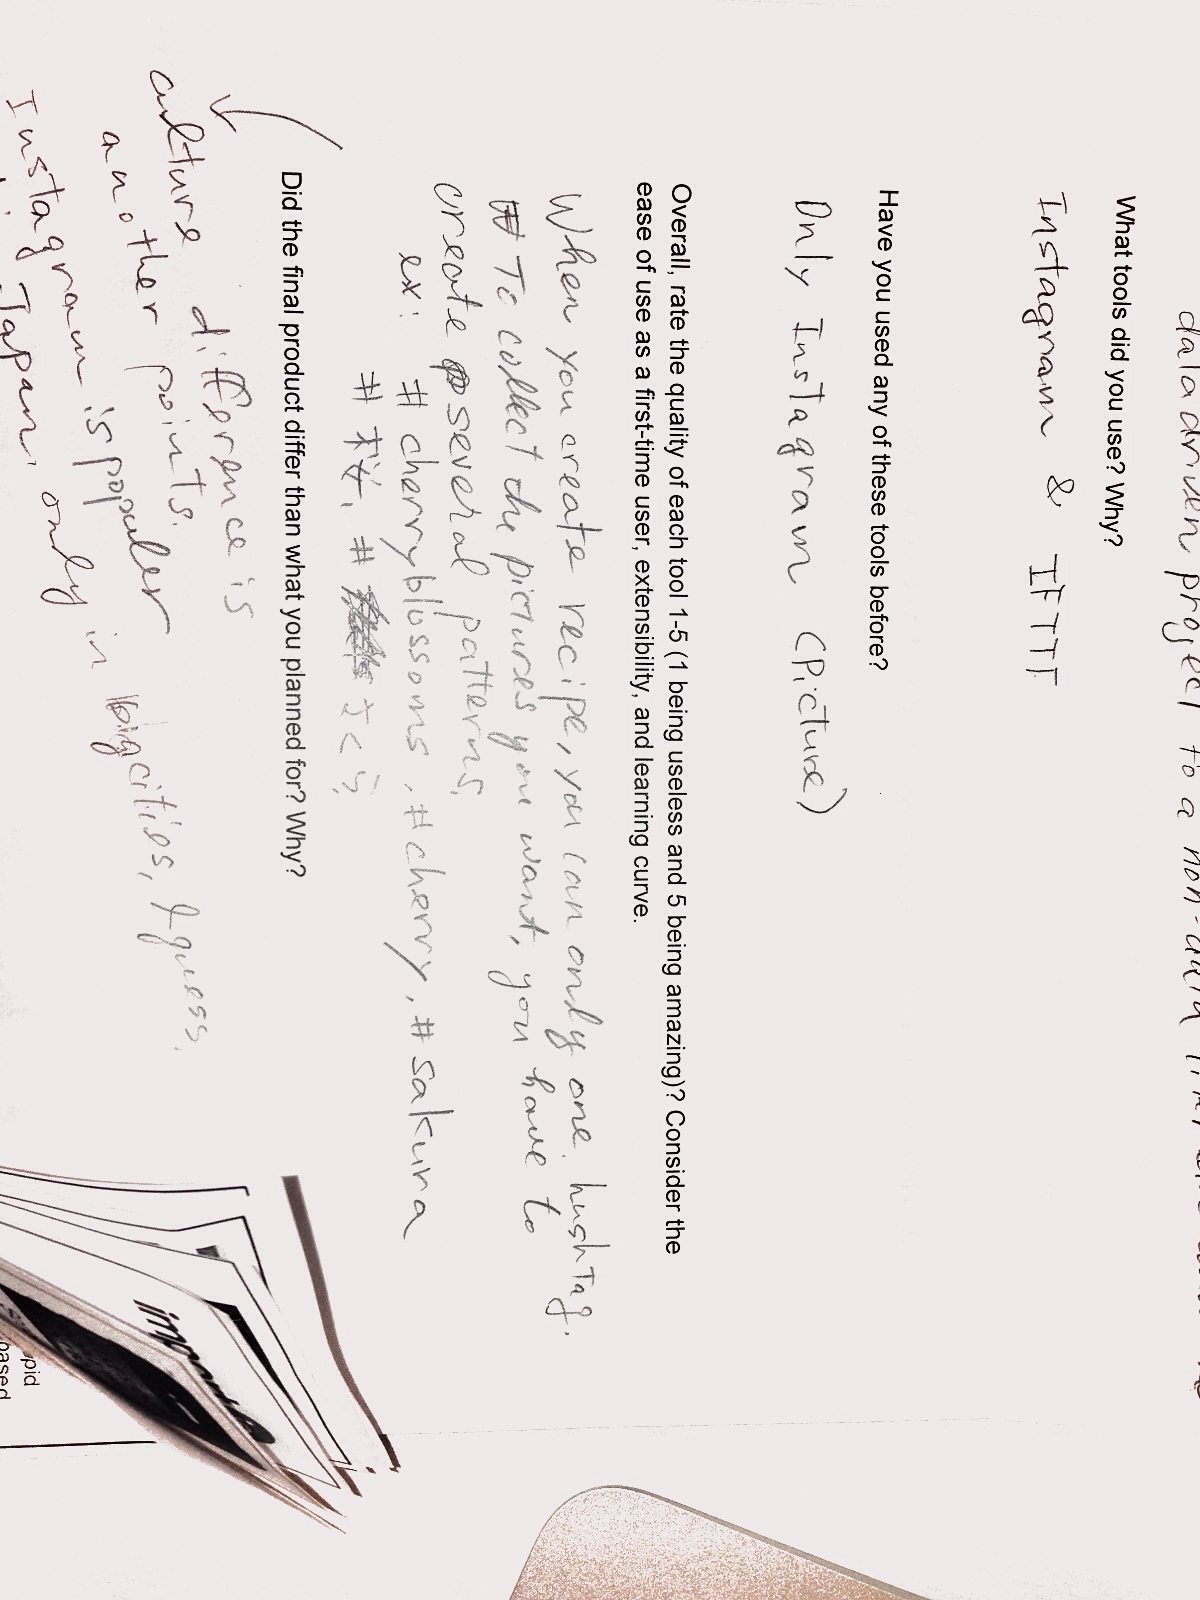 data driven project to a non-data
What tools did you use? Why?
Instagram & IFTTT
Have you used any of these tools before?
Only Instagram (Picture)
Overall, rate the quality of each tool 1-5 (1 being useless and 5 being amazing)? Consider the
ease of use as a first-time user, extensibility, and learning curve.
When you create recipe, you can only one hushtag.
To collect the pictures you want, you have to
create several patterns,
ex: #cherryblossoms, #cherry, #sakura
#桜, #さくら
Did the final product differ than what you planned for? Why?
culture difference is
another points.
Instagram is populer in big cities, I guess.
Japan. only
pid
based